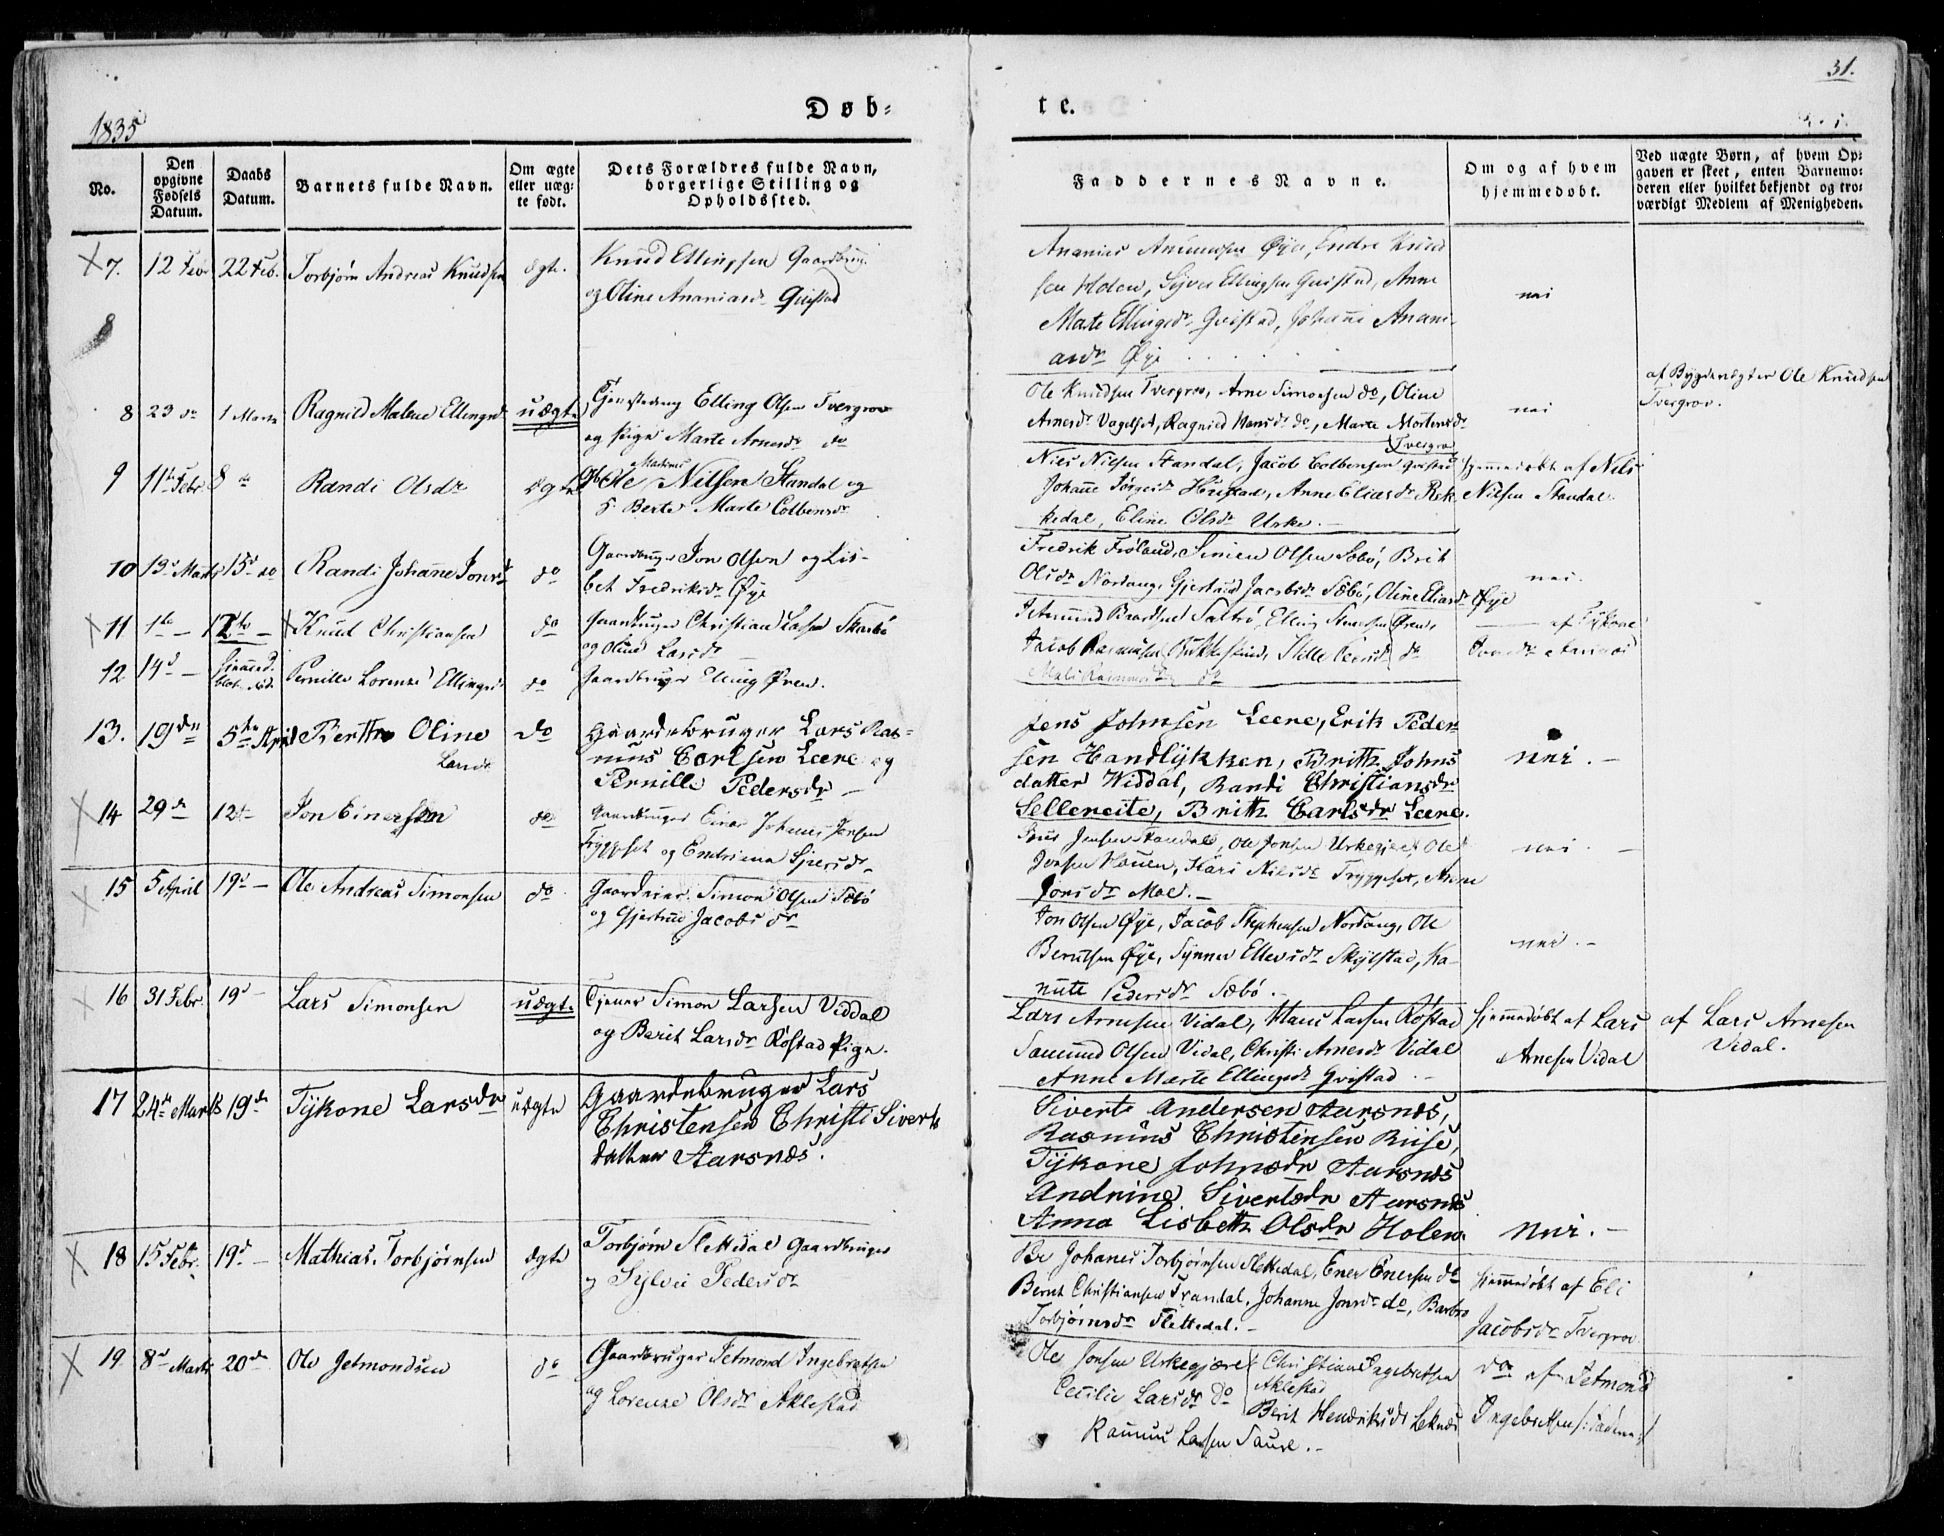 31.
1835
Døb-
te.
No.
Den opgivne Fødsels Datum.
Daabs Datum.
Barnets fulde Navn.
Om ægte eller uægte født.
Dets Forældres fulde Navn, borgerlige Stilling og Opholdssted.
Faddernes Navne.
Om og af hvem hjemmedøbt.
Ved uægte Børn, af hvem Opgaven er skeet, enten Barnemoderen eller hvilket bekjendt og troværdigt Medlem af Menigheden.
7. 12 Febr 22 Feb. Torbjørn Andreas Knudsen ægte. Knud Ellingsen Gaardbrug.
og Oline Ananiasdr Qvistad
Ananias Ananiesen Øye, Endre Knud
sen Holen, Siver Ellingsen Qvistad, Anne
Marte Ellingsdr Qvistad, Johanne Anani-
asdr Øye
nei
8
8 23 do 1 Marts Ragnild Malene Ellingsdr uægte Elling Olsen Tvergrov
og pige Marte Arnesdr do
Ole Knudsen Tvergrov, Arne Simonsen do, Oline
Arnesdr Vagelset, Ragnild Hansdr do, Marte Mortensdr
Tvergrov
nei
af Bygdevægter Ole Knudsen
Tvergrov.
9 11te Febr 8 do Randi Olsdr ægte Ole Nilsen Standal og
Berte Marte Colbensdr
Nils Nilsen Standal, Jacob Colbensen Qvistad
Johanne Jørgensdr Hustad, Anne Eliasdr Rek
kedal, Eline Olsdr Urke. -
Hjemmedøbt af Nils
Nilsen Standal
10 13d Marts 15d do Randi Johanne Jonsdr do Gaardbruger Jon Olsen og Lis-
bet Fredriksdr Øye
Fredrik Frøland, Simen Olsen Sæbø, Brit
Olsdr Nordang, Gjertrud Jacobsdr Sæbø, Oline Eliasdr Øye
nei.
11 1te - 12te - Knud Christiansen do Gaardbruger Christian Larsen Skarbø
og Oline Larsdr
12 14d - Pernille Lorenze Ellingsdr do Gaardbruger Elling Øren.
Jacob Rasmusen
13. 19de 5te April Berthe Oline
Larsdr
do Gaardebruger Lars Ras-
mus Carlsen Leere og
Pernille Pedersdr -
Jens Johnsen Leere, Erik Peder
sen Handlykken, Britth Johns
datter Widdal, Randi Christiansdr
Selleneite, Brith Carlsdr Leere.
nei. -
14 29de 12te Jon Einersen do Gaardbruger Einer Johanes Jensen
Tryggeset og Endriana Siversdr
Jens Jensen Standal, Ole Jonsen Urkegjære, Ole
Jonsen Hauen, Kari Nilsdr Tryggeset, Anne
Jonsdr Moe. -
nei. -
15 5 April 19d - Ole Andreas Simonsen do Simon Olsen Sæbø
og Gjertrud Jacobsdr
Jon Olsen Øye, Jacob Stephensen Nordang, Ole
Berntsen Øye, Synner Ellevsdr Skylstad, Ka-
nute Pedersdr Sæbø. -
nei. -
16 31 Febr. 19d - Lars Simonsen uægte Tjener Simon Larsen Viddal
og Berit Larsdr Røstad Pige.
Lars Arnesen Vidal, Hans Larsen Røstad
Samund Olsen Vidal, Christi Arnesdr Vidal
Anne Marte Ellingsdr Qvistad. -
Hjemmedøbt af Lars
Arnesen Vidal
af Lars Arnesen
Vidal.
17 24de Marts 19de Tykone Larsdr uægte Gaardebruger Lars
Christensen Christi Siverts
datter Aarsnæs.
Siverts Andersen Aarsnæs,
Rasmus Christensen Riise,
Tykone Johnsdr Aarsnæs
Andrine Sivertsdr Aarsnæs
Anna Lisbeth Olsdr Holen
nei. -
18 15 Febr. 19d - Mathias Torbjørnsen ægte Torbjørn Slettedal Gaardbruger
og Sylvei Pedersdr
Johanes Torbjørnsen Slettedal, Ener Enersen do
Bernt Christiansen Trandal, Johanne Jonsdr do, Barbro
Torbjørnsdr Slettedal. -
Hjemmedøbt af Eli
Jacobsdr Tvergrov
19 8d Marts 20de Ole Jetmondsen do Gaardbruger Jetmond Ingebretsen
og Lorenze Olsdr Aklestad
Ole Jonsen Urkegjære Christian Ingebretsen
Aklestad
Cecilie Larsdr do Berit Hendriksdr Leknæs
Rasmus Larsen Saure. -
do af Jetmond
Ingebretsen